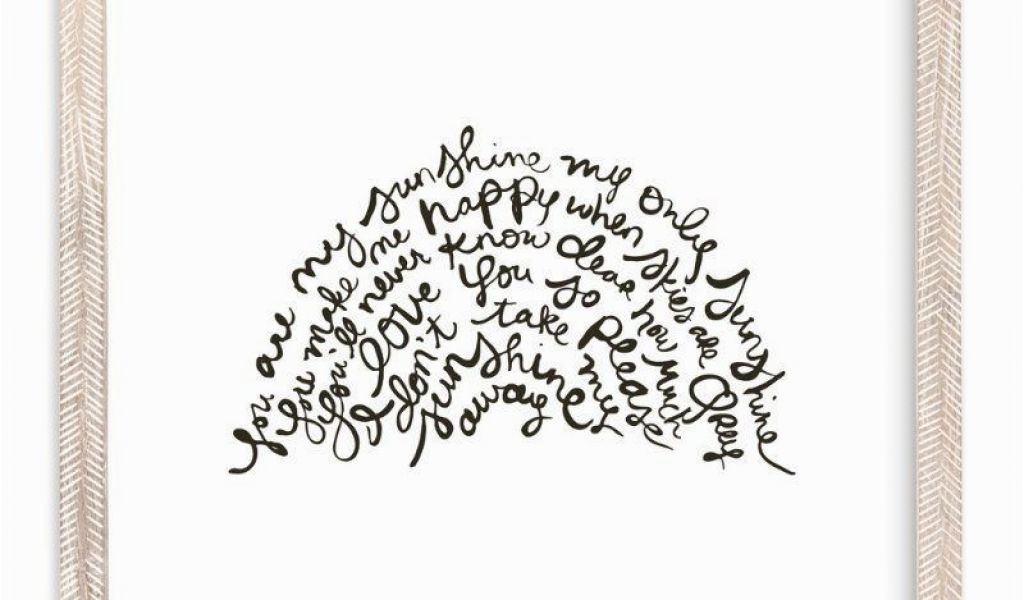 you are my sunshine my only sunshine
you make me happy when skies are grey
you'll never know dear how much
I love you so please
don't take my
sunshine
away